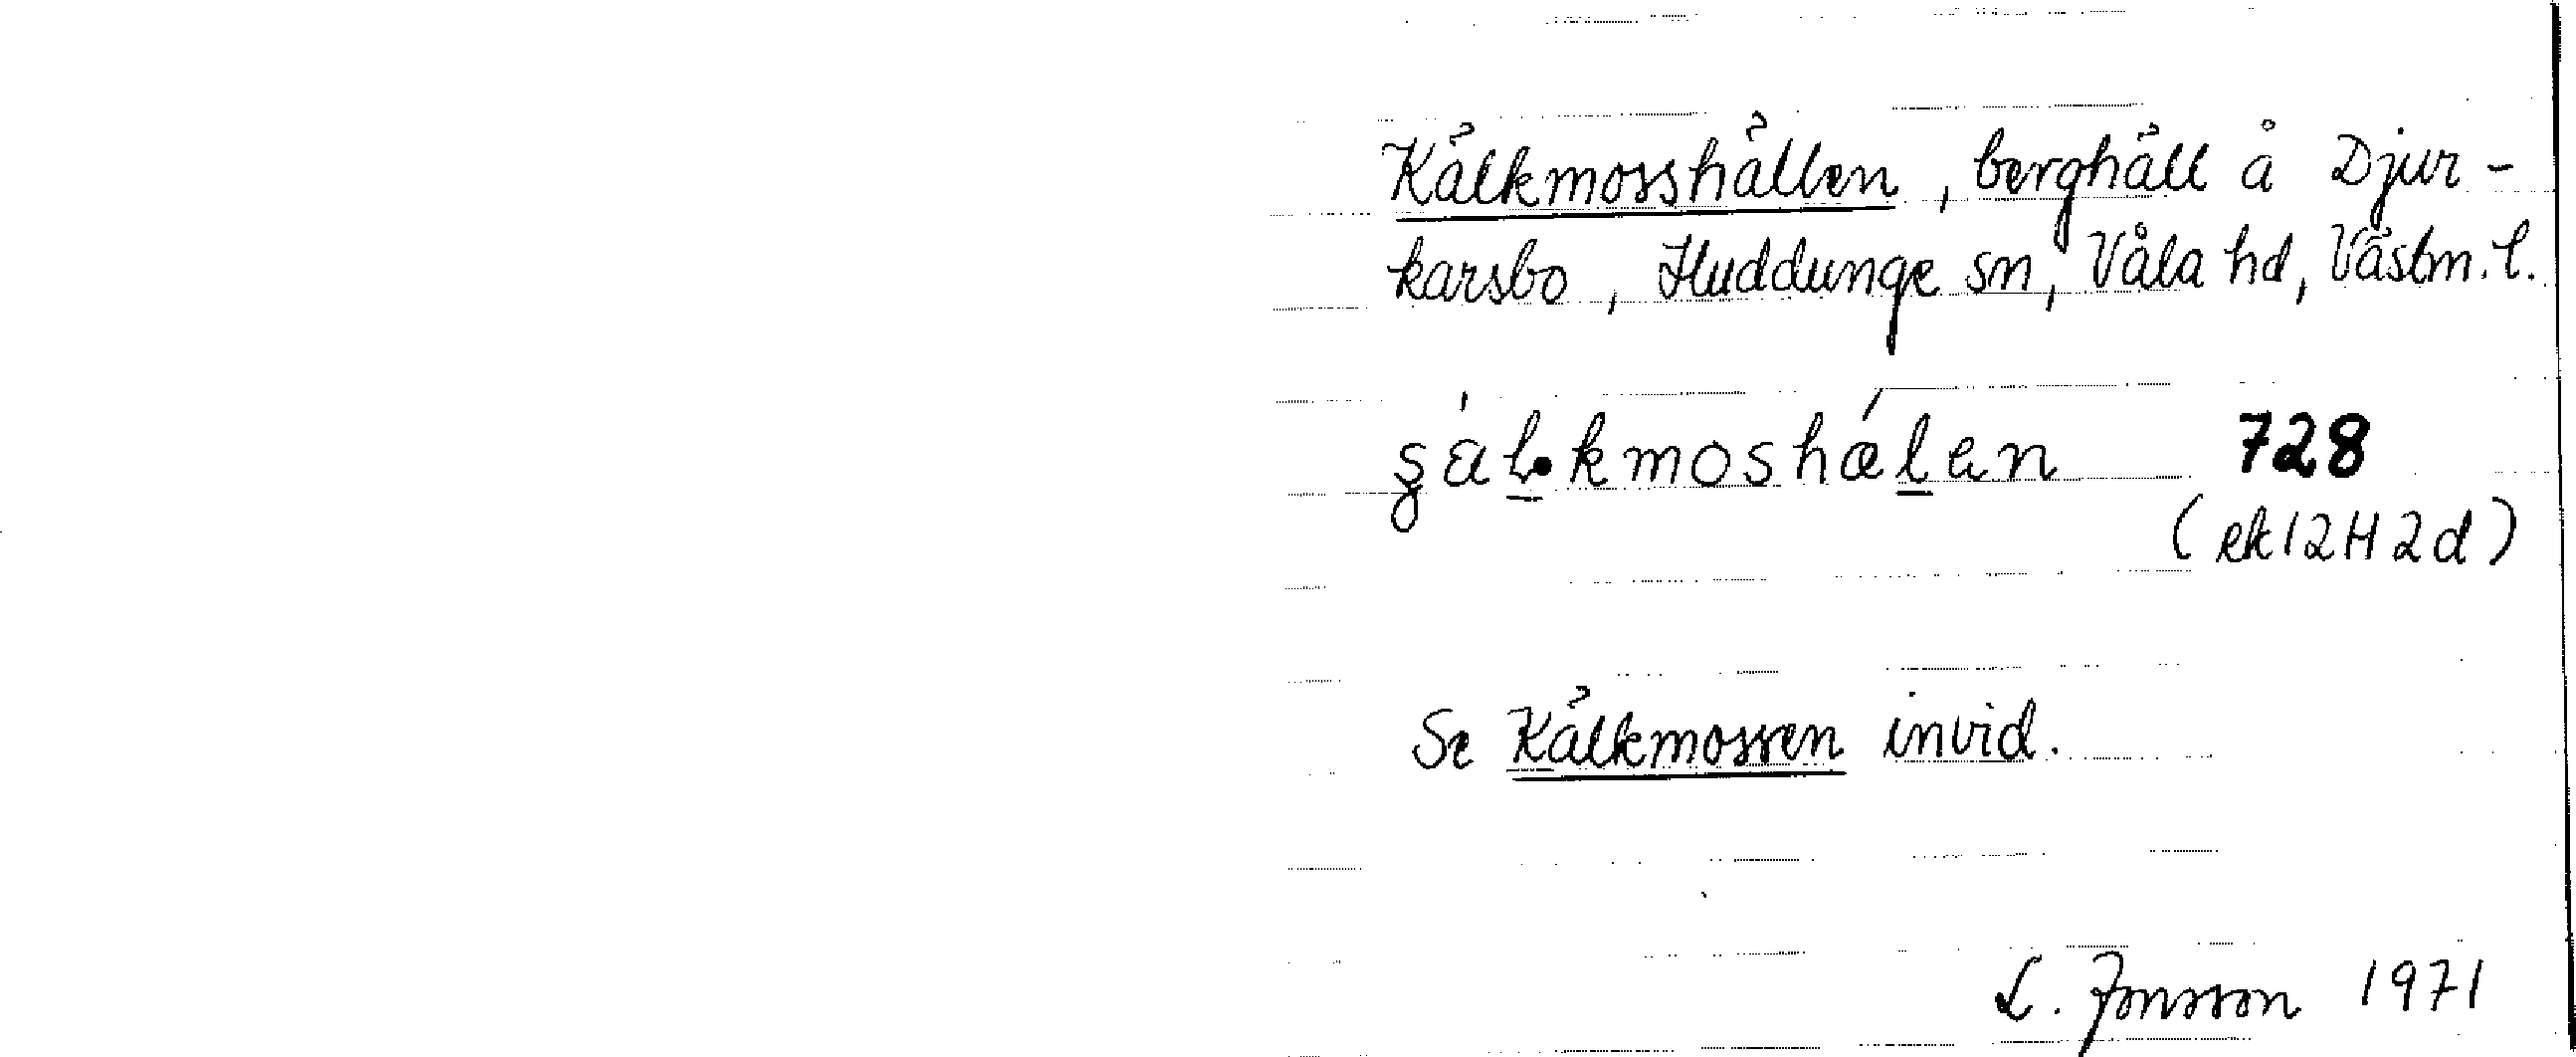 Kälkmosshällen, berghäll å Djur-
karsbo, Huddunge sn, Våla hd, Västm. l.
728
(ek 12H 2d)
Se Kälkmossen invid.
L. Jonsson 1971